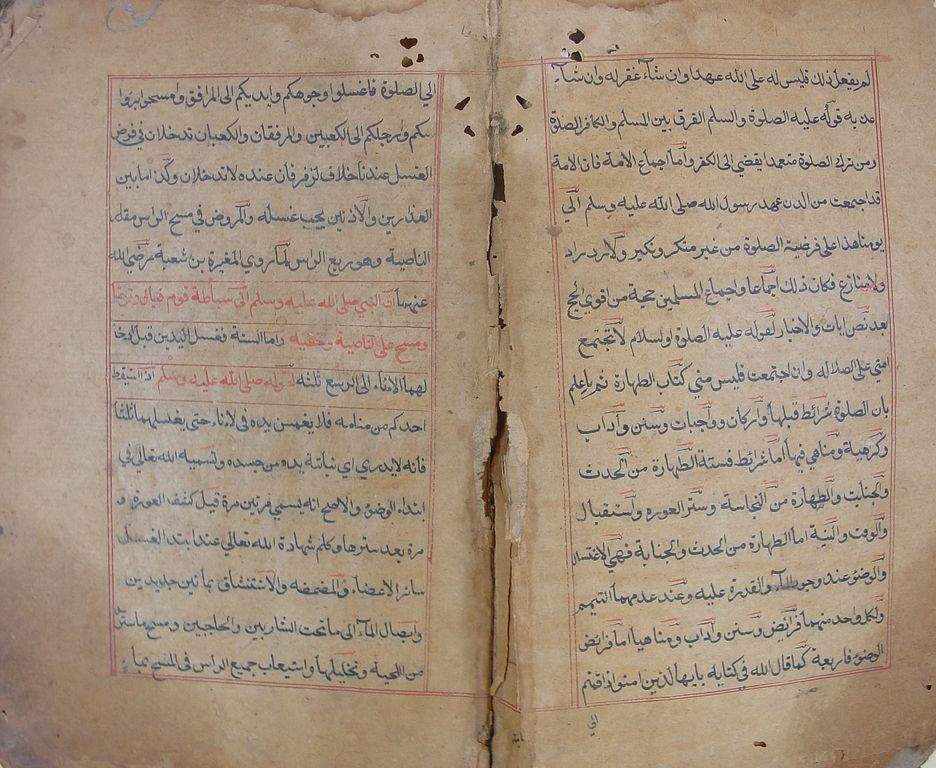 لم يفعل ذلك فليس له على الله عهدا وان شاء غفر له وان شاء
عذبه قوله عليه الصلوة والسلم الفرق بين المسلم والكافر الصلوة
ومن ترك الصلوة متعمدا يقضي الى الكفر واما اجماع الامة فان الامة
قد اجمعت من الدن عهد رسول الله صلى الله عليه وسلم الي
يومنا هذا على فرضية الصلوة من غير منكر ونكير ولا رد راد
ولا منازع فكان ذلك اجماعا واجماع المسلمين حجة من اقوي الحج
بعد نص ايات والاخبار لقوله عليه الصلوة اولسلام لا تجتمع
امتي على الضلالة وان اجتمعت فليس مني كتاب الطهارة ثم اعلم
بان الصلوة شرائط قبلها واركان وواجبات وسنن وآداب
وكرهية ومناهي فيها اما شرائط فستة الطهارة من الحدث
والجنابت والطهارة من النجاسة وستر العوره واستقبال
والوقت والنية اما الطهارة من الحدث والجنابة فهي الاغتسال
والوضوء عند وجود الماء والقدرة عليه وعند عدمهما التيمم
ولكل واحد منهما فرائض وسنن وآداب ومناهيا اما فرائض
الوضوء فاربعة كما قال الله في كتابه يايها الذين امنوا اذا قمتم
الي
الي الصلوة فاغسلوا وجوهكم وايديكم الى المرافق وامسحوا برؤا
سكم وارجلكم الى الكعبين والمرفقان والكعبان تدخلان في فرض
الغسل عندنا خلاف لزفر فان عنده لا تدخلان وكذا ما بين
العذارين والاذنين يجب غسله والمفروض في مسح الراس مقدار
الناصية وهو ربع الراس لما روي المغيرة بن شعبة رضي الله
عنهما ان النبي صلى الله عليه وسلم اتى سباطة قوم فبال وتوضا
ومسح على الناصية وخفيه واما السنة فغسل اليدين قبل ادخا
لهما الاناء الى الرسغ ثلثه لقوله صلى الله عليه وسلم اذا استيقظ
احدكم من منامه فلا يغمسن يده في لاناء حتى يغسلهما ثلثا
فانه لا يدري اي نباتته يده من جسده وتسميه الله تعالي في
ابتداء الوضوء والاصح انه يسمي مرتين مرة قبل كشف العورة و
مرة بعد سترها وكلم شهادة الله تعالي عند ابتدا الغسل
سائر الاعضاء والمضمضه والاستنشاق بمائين جديدين
وايصال الماء الى ما تحت الشاربين والحاجبين ومسح ما سترل
من اللحية وتخليلها واستيعاب جميع الراس في المسح بماء